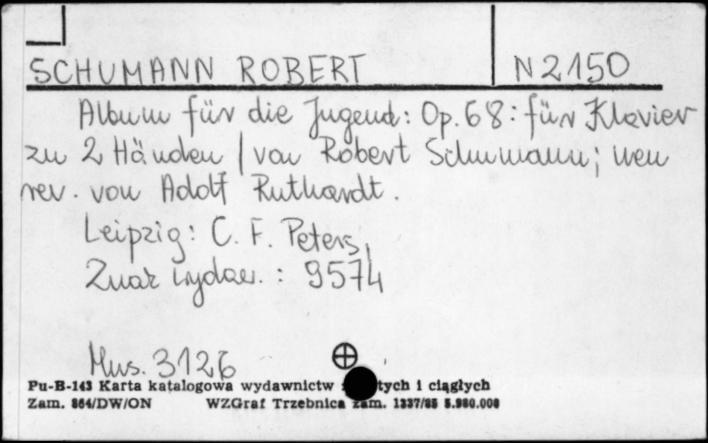 SCHUMANN ROBERT N 2150
Album für die Jugend: Op. 68: für Klavier
zu 2 Händen / von Robert Schumann; neu
rev. von Adolf Ruthardt.
Leipzig: C. F. Peters,
Znak wydaw.: 9574
Mus. 3126
Pu-B-143 Karta katalogowa wydawnictw tych i ciągłych
Zam. 864/DW/ON WZGraf Trzebnica zam. 1337/85 5.980.000